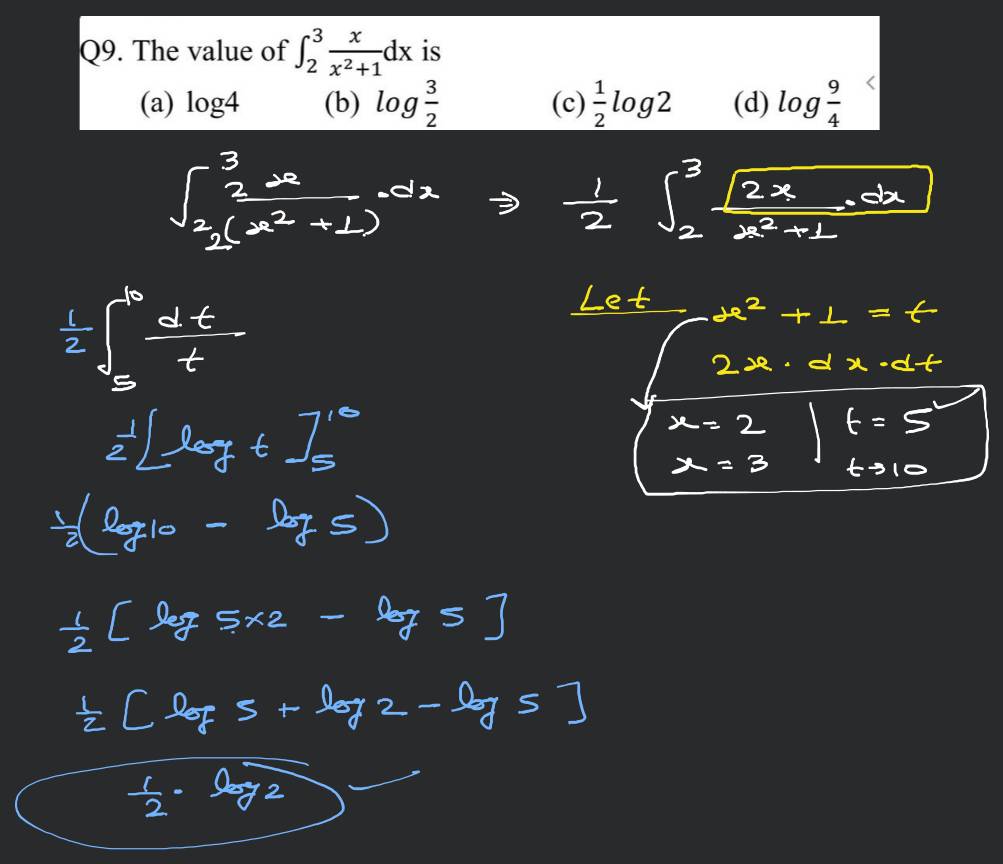 Q9. The value of ∫₂³ x/(x²+1) dx is
(a) log4 (b) log 3/2 (c) 1/2 log2 (d) log 9/4
∫₂³ 2x/2(x²+1) .dx ⇒ 1/2 ∫₂³ 2x/(x²+1) .dx
Let x²+1 = t
2x . dx . dt
x = 2 | t = 5
x = 3 | t→10
1/2 ∫₅¹⁰ dt/t
1/2 [log t]₅¹⁰
1/2 (log 10 - log 5)
1/2 [log 5×2 - log 5]
1/2 [log 5 + log 2 - log 5]
1/2 . log 2